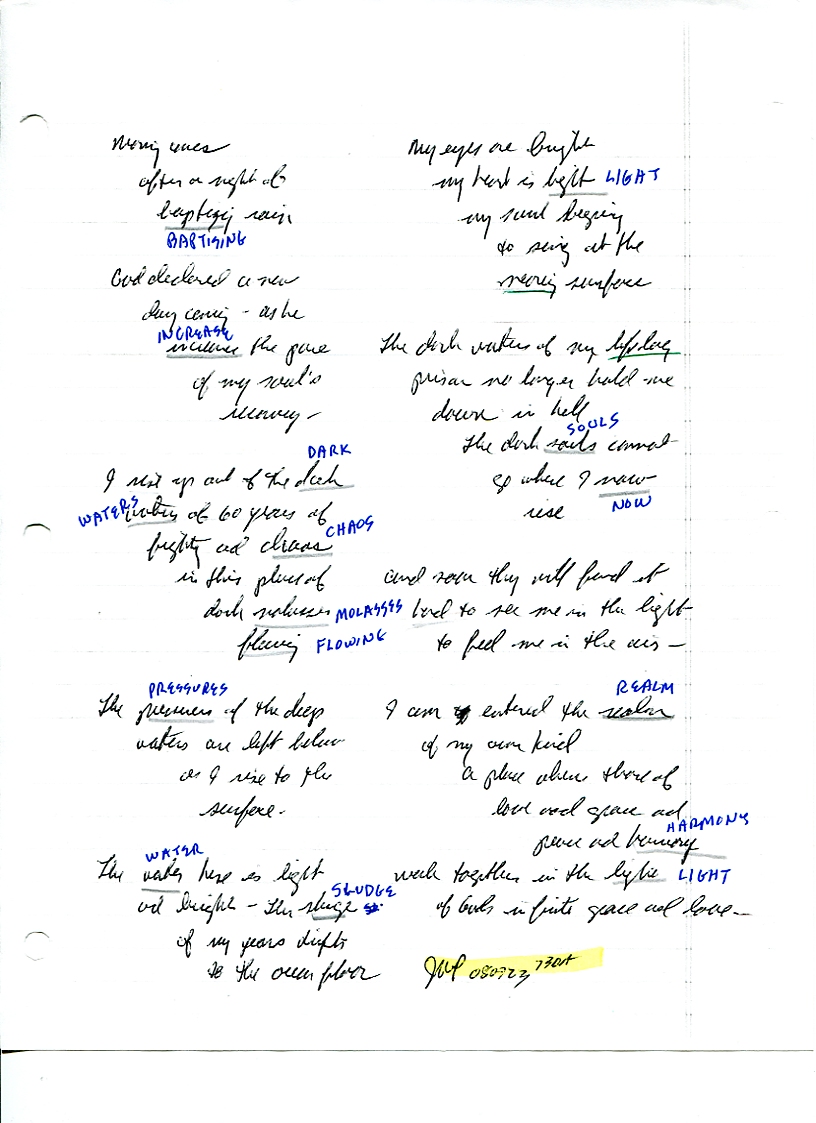 Morning comes
after a night of
baptizing rain
BAPTISING
God declared a new
day coming - as he
INCREASE
increase the pace
of my soul's
recovery -
DARK
I rise up out of the dark
WATERS waters of 60 years of
fighting and chaos CHAOS
in this place of
dark molasses MOLASSES
flowing FLOWING
PRESSURES
The pressures of the deep
waters are left below
as I rise to the
surface.
WATER
The water here is light
SLUDGE
and bright - the sludge
of my years drifts
to the ocean floor
My eyes are bright
my heart is light LIGHT
my soul begins
to sing at the
surface
The dark waters of my lifelong
prison no longer hold me
down in hell
SOULS
The dark souls cannot
go where I now
rise NOW
and soon they will find it
hard to see me in the light
to feel me in the air -
REALM
I am entered the realm
of my own kind
a place where those of
love and grace and
HARMONY
peace and harmony
work together in the light LIGHT
of God's infinite grace and love -
JWP 080723 730A